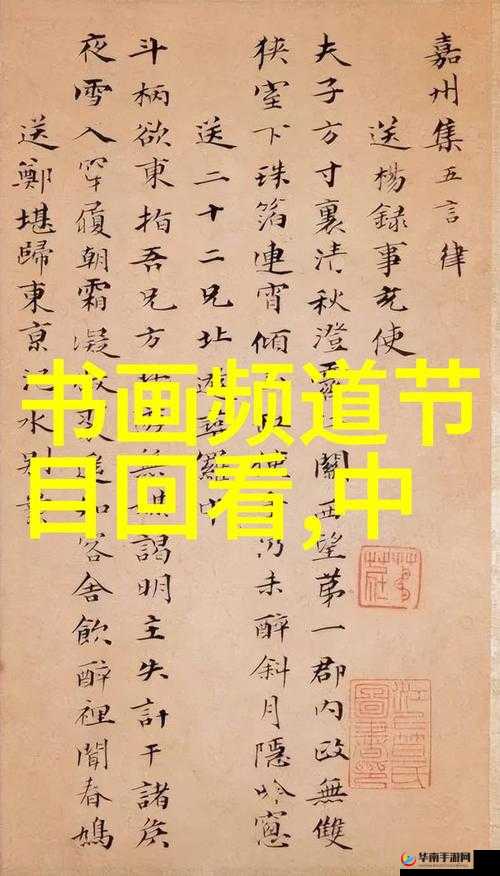 嘉州集五言律
送楊録事充使
夫子方寸裏清秋澄關西望第一郡内政無雙
狹室下珠箔連宵傾未醉斜月隱吟窓
送二十二兄北
斗柄欲東指吾兄方謁明主失計干諸侯
夜雪入穿履朝霜凝客舍飲醉裡聞春鳩
送鄭堪歸東京水别業
书画频道节
目回看,中
华南手游网